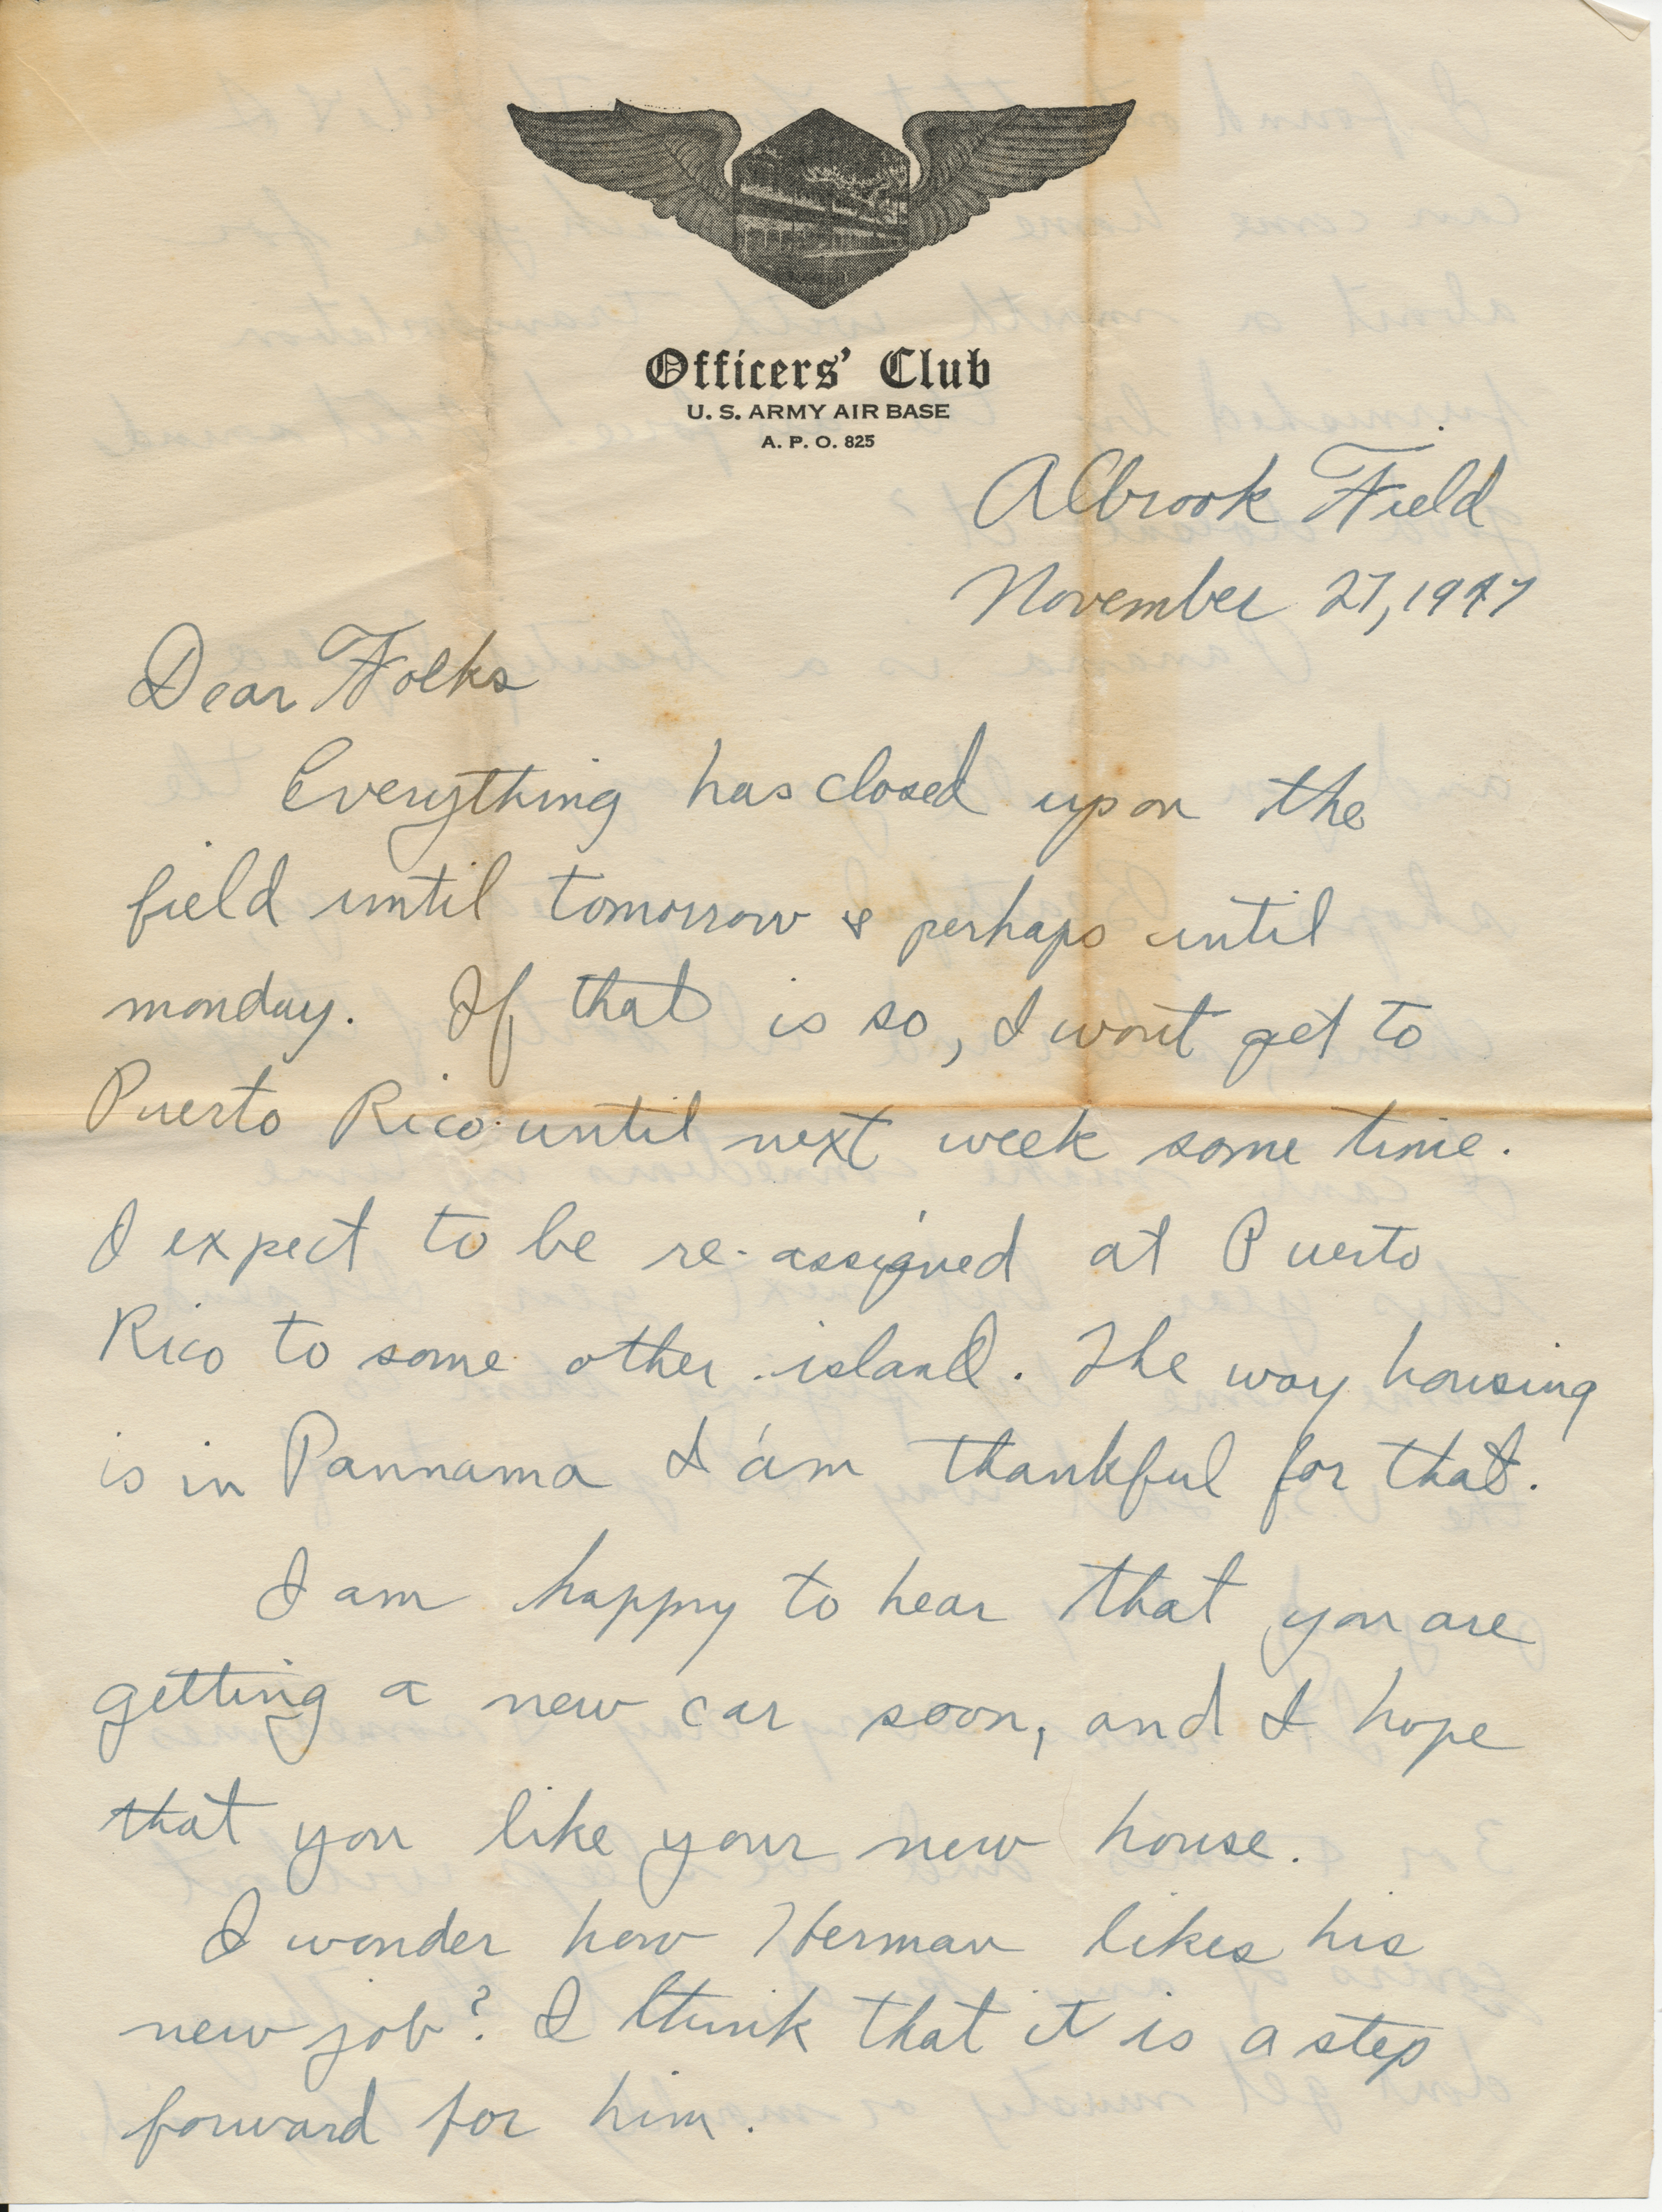 Officers' Club
U. S. ARMY AIR BASE
A. P. O. 825
Albrook Field
November 27, 1947
Dear Folks
Everything has closed up on the
field until tomorrow & perhaps until
monday. If that is so, I wont get to
Puerto Rico until next week some time.
I expect to be re-assigned at Puerto
Rico to some other island. The way housing
is in Pannama I'am thankful for that.
I am happy to hear that you are
getting a new car soon, and I hope
that you like your new house.
I wonder how Herman likes his
new job? I think that it is a step
forward for him.